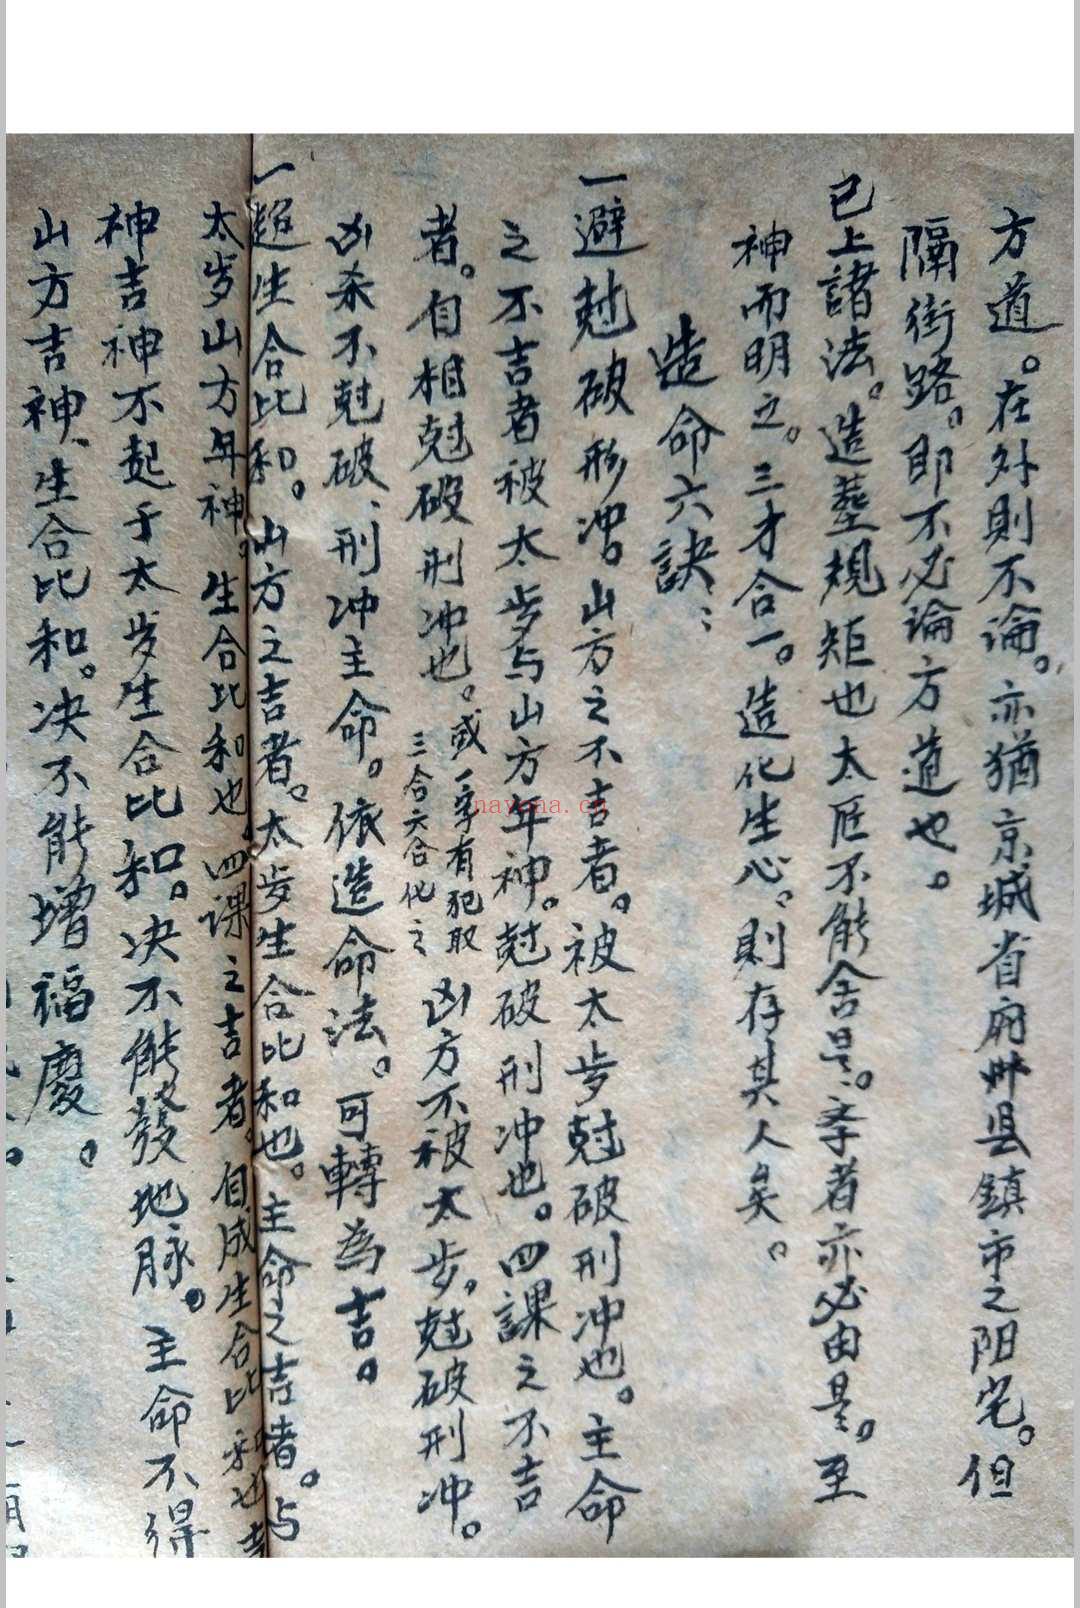 方道。在外則不論。亦猶京城省府州县鎮市之阳宅。但
隔街路。即不必論方道也。
已上諸法。造塟規矩也太匠不能舍是。李者亦必由是。至
神而明之。三才合一。造化生心。則存其人矣。
造命六訣：
一避尅破形冲山方之不吉者。被太步尅破刑冲也。主命
之不吉者被太步与山方年神。尅破刑冲也。四課之不吉
者。自相尅破刑冲也。或一字有犯取
三合六合化之
凶方不被太步。尅破刑冲。
凶杀不尅破、刑冲主命。依造命法。可轉為吉。
一趨生合比和。山方之吉者。太步生合比和也。主命之吉者。与
太岁山方年神。生合比和也。四課之吉者。自成生合比和也吉
神吉神不起于太步生合比和。决不能發地脉。主命不得
山方吉神、生合比和。决不能增福慶。
nayona.cn